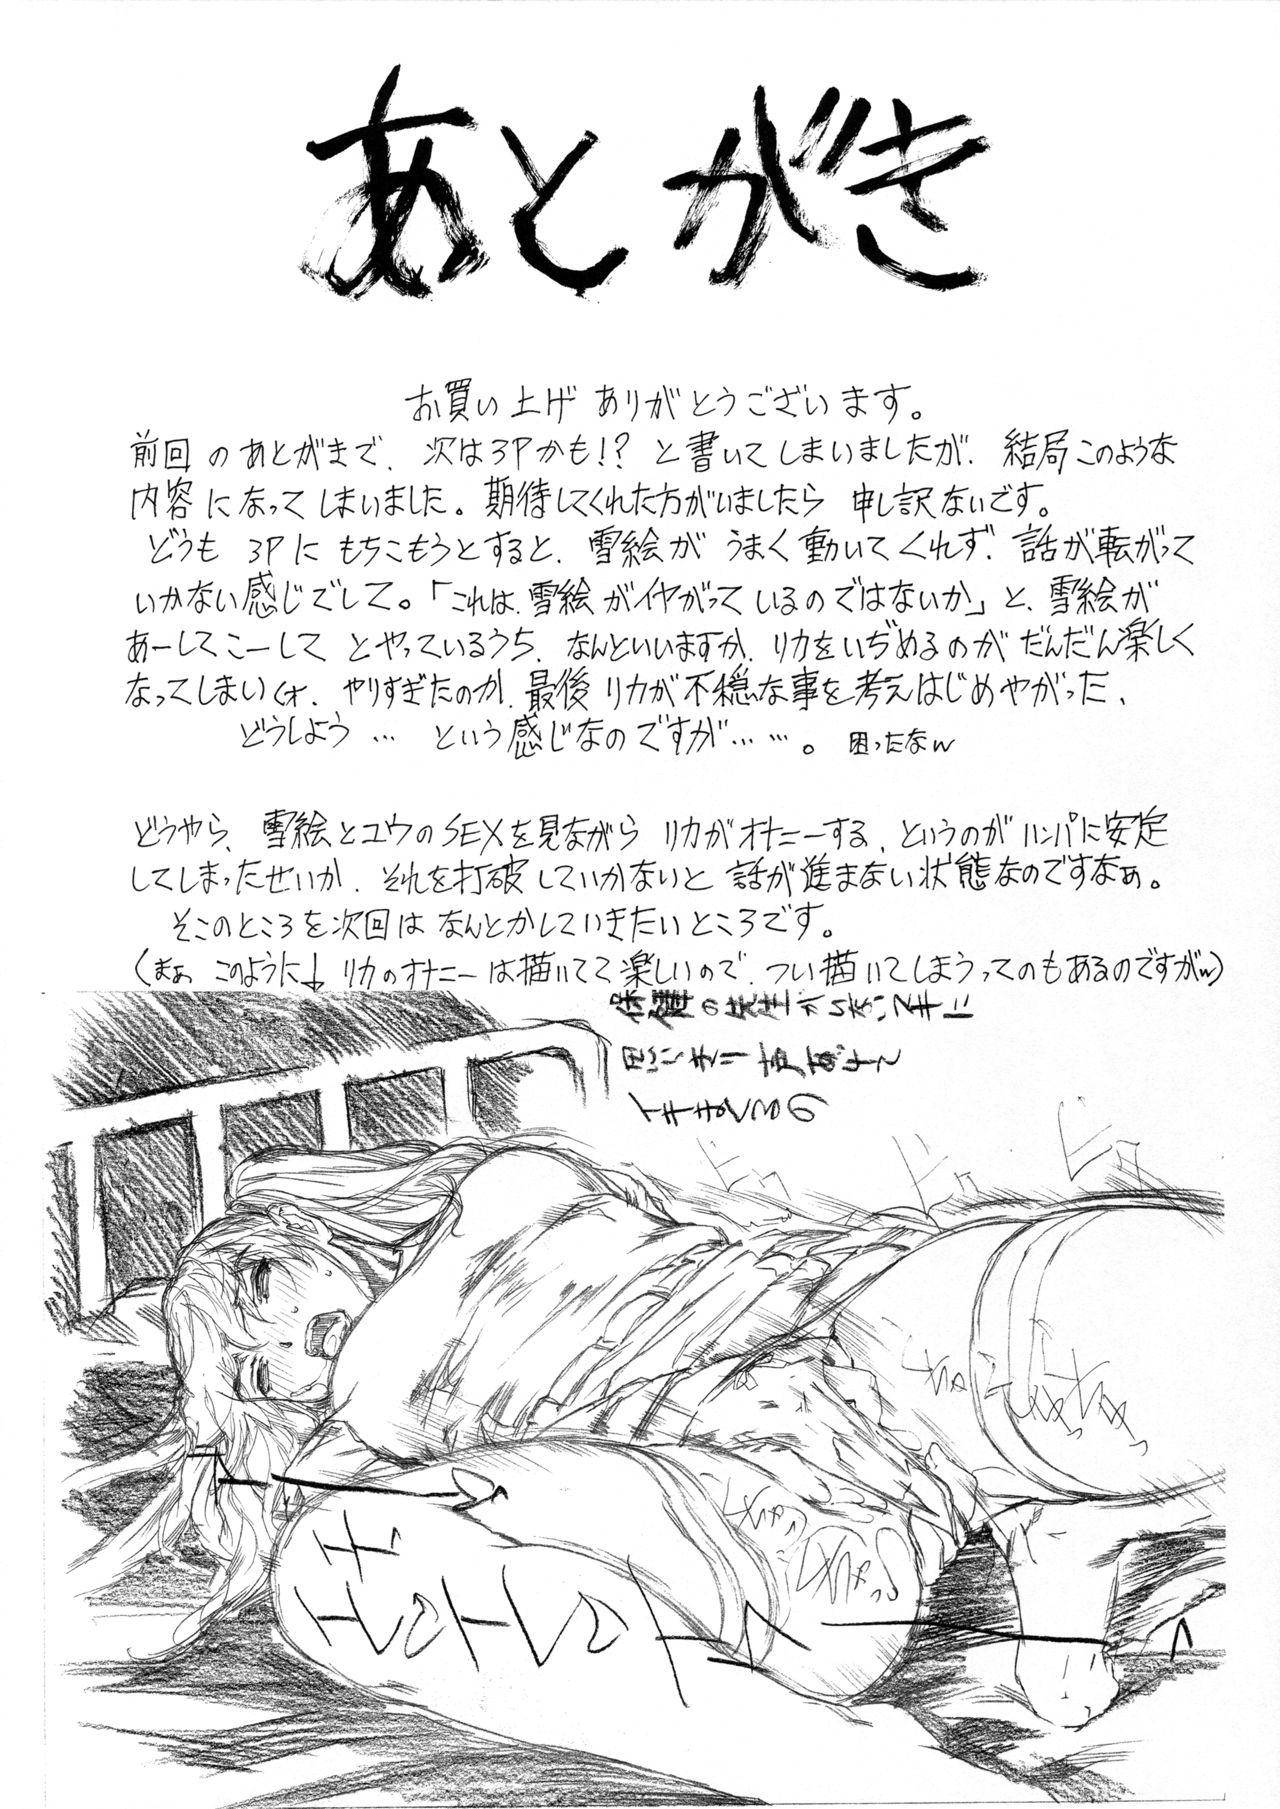 あとがき
お買い上げ ありがとうございます。
前回のあとがきで、次は3Pかも!? と書いてしまいましたが、結局このような
内容になってしまいました。期待してくれた方がいましたら 申し訳ないです。
どうも 3Pに もちこもうとすると、雪絵が うまく動いてくれず、話が転がって
いかない感じでして。「これは、雪絵がイヤがっているのではないか」と、雪絵が
あーしてこーして とやっているうち、なんといいますか、リカをいぢめるのが だんだん楽しく
なってしまい(オ、やりすぎたのか、最後 リカが不穏な事を考えはじめやがった、
どうしよう… という感じなのですが……。困ったなw
どうやら、雪絵とユウのSEXを見ながら リカがオナニーする、というのが ハンパに安定
してしまったせいか、それを打破していかないと 話が進まない状態なのですなぁ。
そこのところを次回は なんとかしていきたいところです。
(まぁ このように↓ リカのオナニーは描いてて楽しいので、つい描いてしまうってのもあるのですがw)